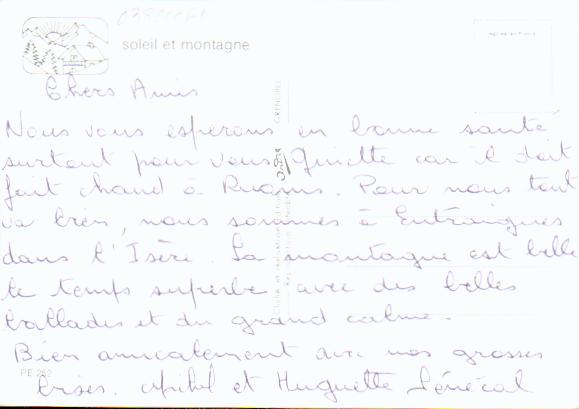 soleil et montagne
Chers Amis
Nous vous esperons en bonne santé
surtout pour vous Guiitte car il doit
fait chaud à Ruoms. Pour nous tout
va bien, nous sommes à Entraigues
dans l'Isère. La montagne est belle
le temps superbe avec des belles
ballades et du grand calme.
Bien amicalement avec nos grosses
PE 262
bises. et Huguette Sénécal
GRENOBLE